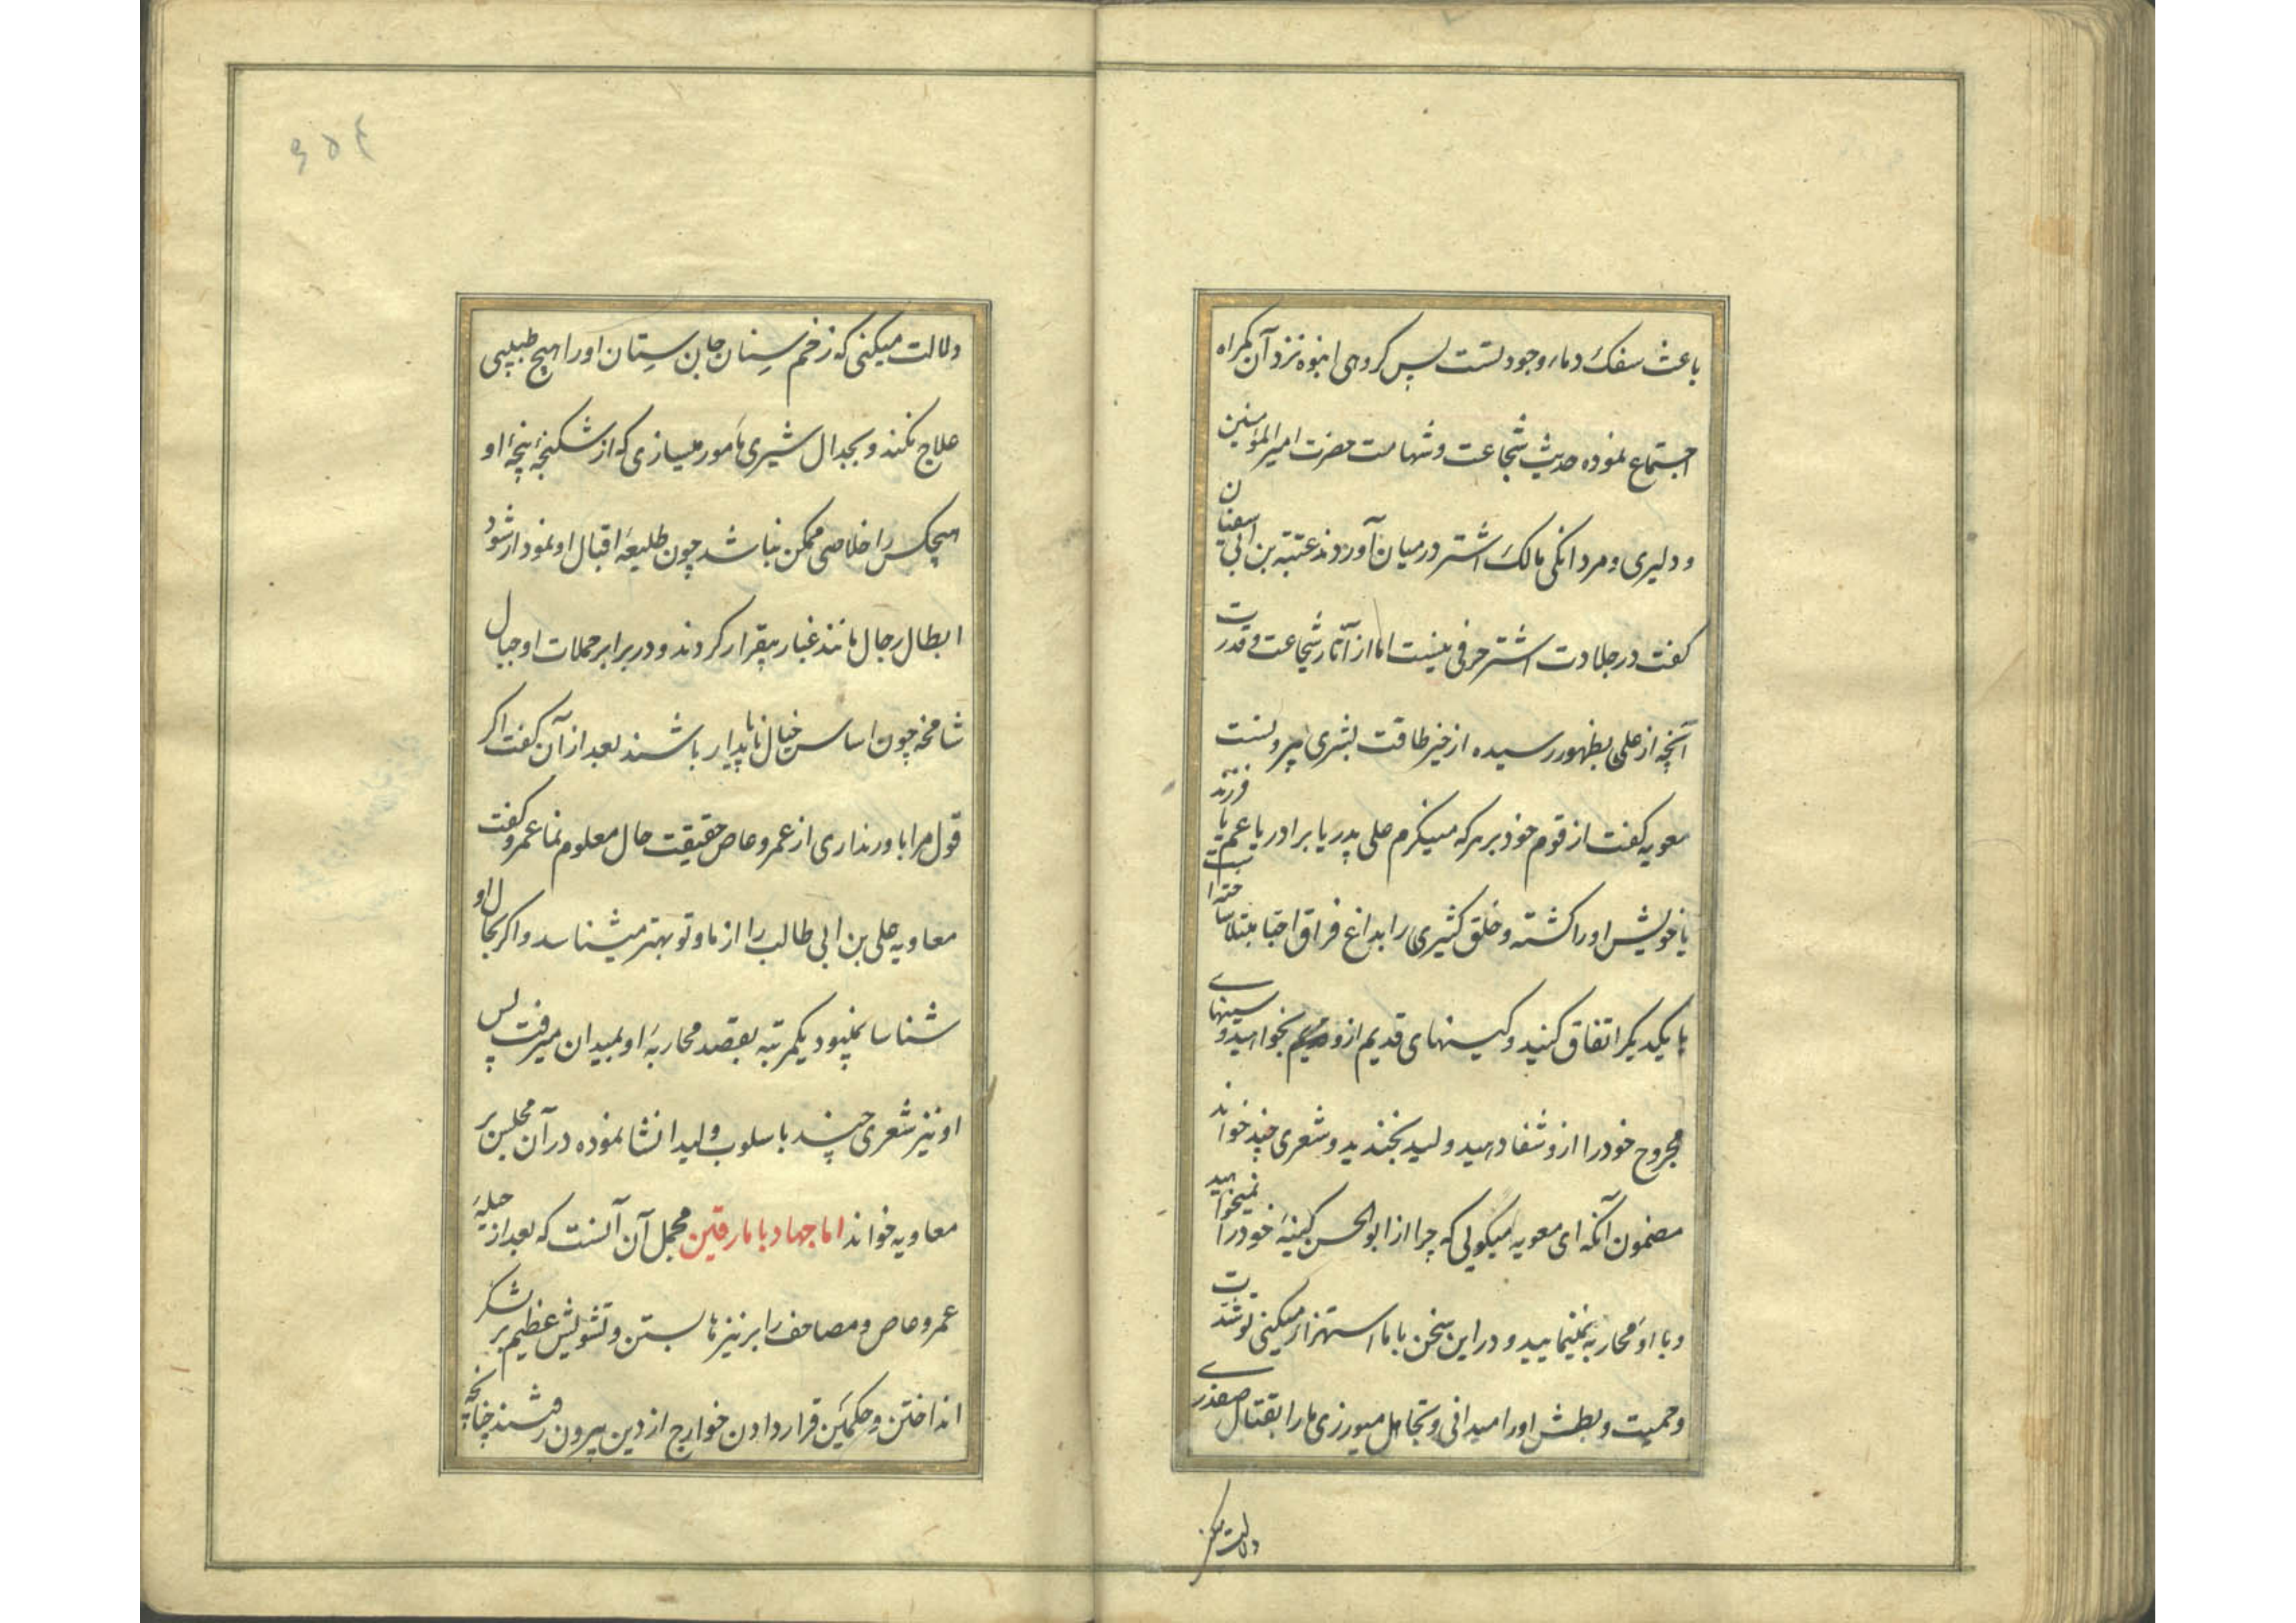 باعث سفک دماء وجود تست پس گروهی انبوه نزد آن گمراه
اجتماع نموده حدیث شجاعت و شهامت حضرت امیرالمؤمنین
و دلیری و مردانکی مالک اشتر در میان آوردند عتبه بن ابی سفیان
کفت در جلادت اشتر حرفی نیست اما از آثار شجاعت و قدرت
آنچه از علی بظهور رسیده از حیز طاقت بشری بیرونست
معویه کفت از قوم خود بر هر که مینکرم علی پدر یا برادر یا عم یا فرزند
یا خویش او را کشته و خلق کثیری را بداغ فراق احبا مبتلا ساخته
با یکدیکر اتفاق کنید و کینهای قدیم ازو بخواهید و سینهای
مجروح خود را ازو شفا دهید ولید بخندید و شعری چند خواند
مضمون آنکه ای معویه میکویی که چرا از ابوالحسن کینهٔ خود را نمیخواهید
و با او محاربه نمینمایید و در این سخن با ما استهزا میکنی تو شدت
و حمیت و بطش او را میدانی و تجاهل میورزی ما را بقتال صفدری
دلالت میکنی
۶۵۴
دلالت میکنی که زخم سنان جان ستان او را هیچ طبیبی
علاج نکند و بجدال شیری مأمور میسازی که از شکنجهٔ پنجهٔ او
هیچکس را خلاصی ممکن نباشد چون طلیعهٔ اقبال او نمودار شود
ابطال رجال مانند غبار بیقرار کردند و در برابر حملات او جبال
شامخه چون اساس خیال ناپایدار باشند بعد از آن کفت اکر
قول مرا باور نداری از عمرو عاص حقیقت حال معلوم نما عمرو کفت
معاویه علی بن ابی طالب را از ما و تو بهتر میشناسد و اکر بحال او
شناسا نمیبود یکمرتبه بقصد محاربهٔ او بمیدان میرفت پس
او نیز شعری چند باسلوب ولید انشا نموده در آن مجلس بر
معاویه خواند اما جهاد با مارقین مجمل آن آنست که بعد از حیلهٔ
عمرو عاص و مصاحف را بر نیزها بستن و تشویش عظیم بر لشکر
انداختن و حکمین قرار دادن خوارج از دین بیرون رفتند چنانچه